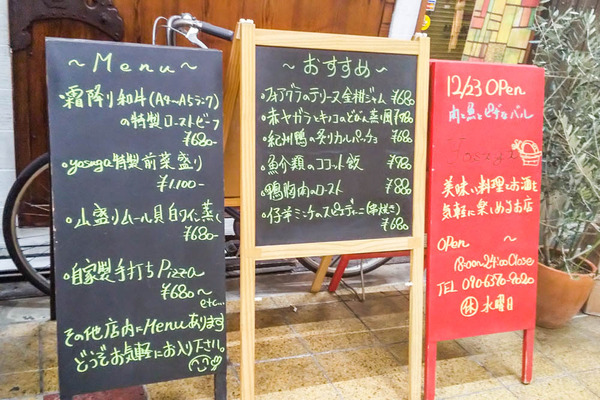 ~Menu~
・霜降り和牛(A4~A5ランク)
の特製ローストビーフ
¥680-
・yasuga特製前菜盛り
¥1,100-
・山盛りムール貝白ワイン蒸し
¥680-
・自家製手打ちPizza
¥680~
etc...
その他店内にMenuあります
どうぞお気軽にお入り下さい。
~おすすめ~
・フォアグラのテリーヌ金柑ジャム ¥680
・赤ヤガラとキノコのどびん蒸し風
・紀州鴨の炙りカルパッチョ ¥680
・魚介類のココット飯 ¥780
・鴨胸肉のロースト ¥880
・仔羊ミンチのスピエディーニ(串焼き)
¥680
12/23 OPen
肉と魚とピザなバル
美味い料理とお酒を
気軽に楽しめるお店
OPen ~
18:00~24:00Close
TEL 090-6376-9020
休 水曜日